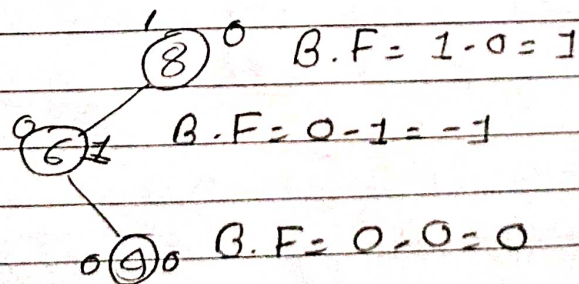 1 8 0 B.F = 1-0 = 1
0 6 1 B.F = 0-1 = -1
0 9 0 B.F = 0-0 = 0